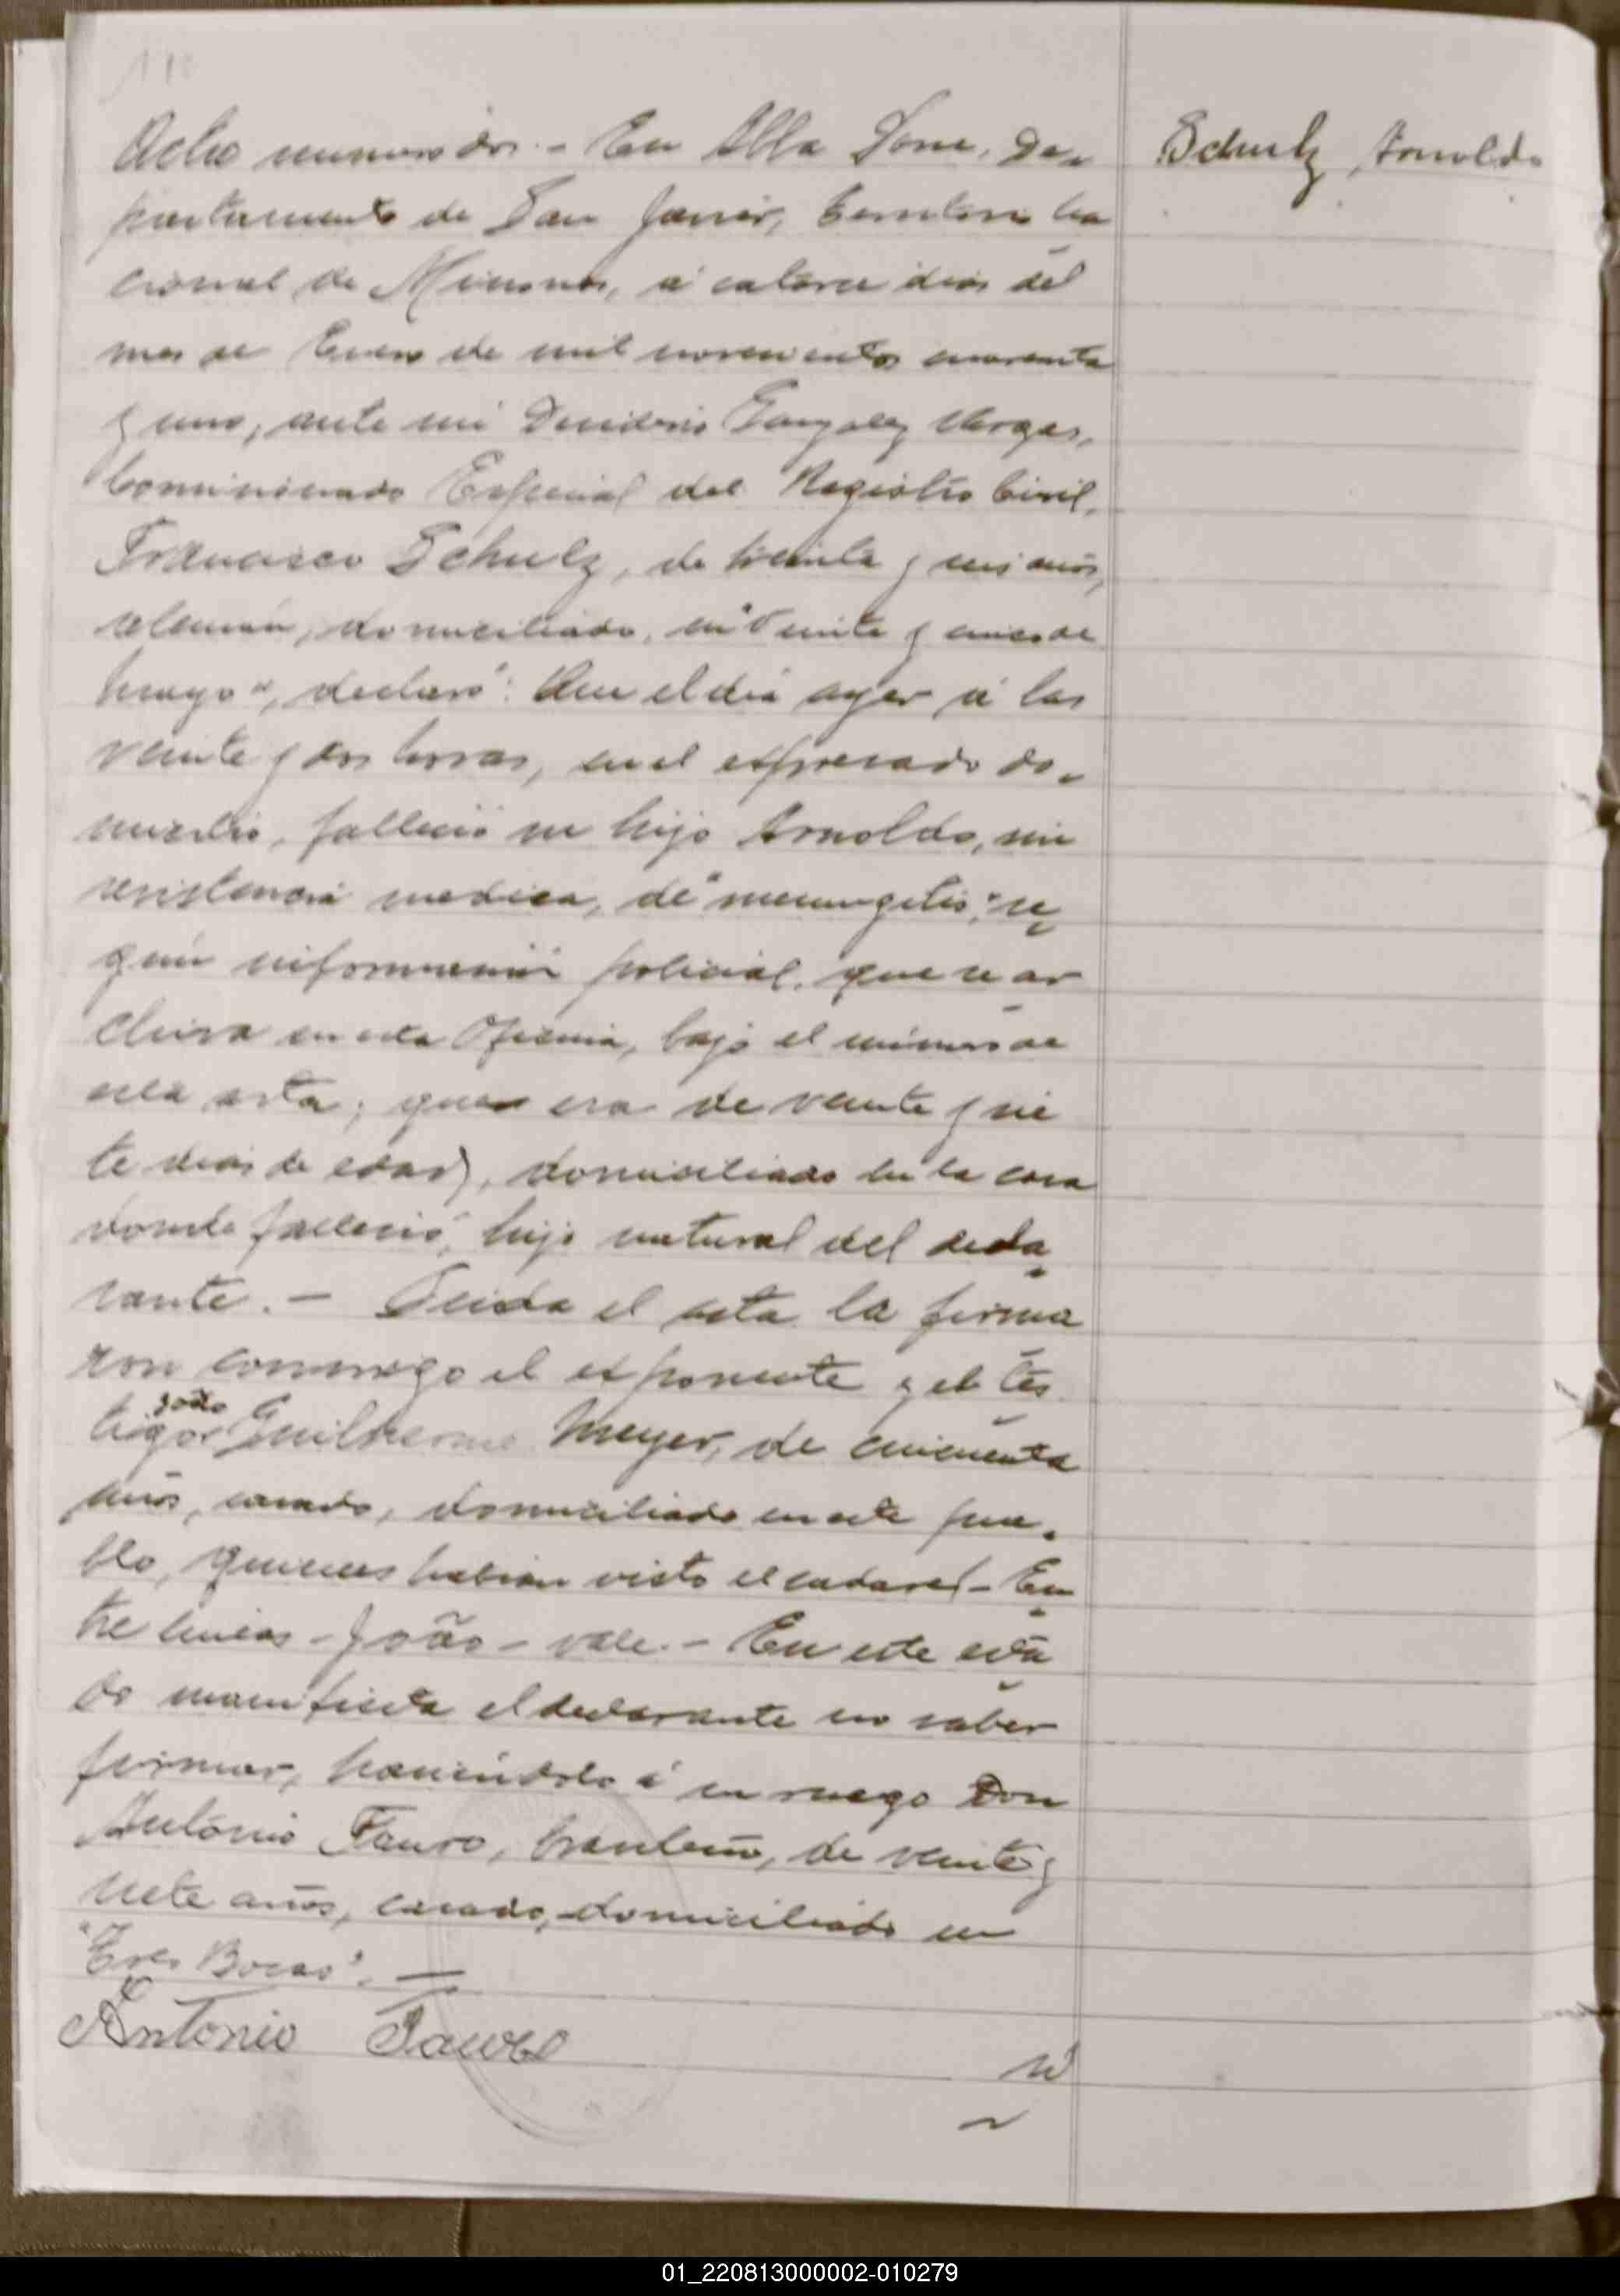 Acta numero dos.- En Alba Posse, De-
partamento de San Javier, territorio na
cional de Misiones, á catorce dias del
mes de Enero de mil novecientos cuarenta
y uno, ante mi Desiderio González Vargas,
Comisionado Especial del Registro Civil,
Francisco Schulz, de treinta y seis años,
aleman, domiciliado, en "Veinte y cinco de
Mayo", declaró: Que el dia ayer á las
veinte y dos horas, en el expresado do-
micilio, falleció su hijo Arnoldo, sin
asistencia medica, de "meningitis", se
gún información policial, que se ar
chiva en esta Oficina, bajo el número de
esta acta; que era de veinte y sie
te dias de edad, domiciliado en la casa
donde falleció, hijo natural del decla
rante.- Leida el acta la firma
ron conmigo el exponente y el tes
tigo João Guilherme Meyer, de cincuenta
años, casado, domiciliado en este pue-
blo, quienes habian visto el cadaver.- En
tre lineas - João - vale.- En este esta
do manifiesta el declarante no saber
firmar, haciéndolo á su ruego Don
Antonio Fauro, brasileño, de veinte y
siete años, casado, domiciliado en
"Tres Bocas".-
Antonio
Schulz, Arnoldo
01_220813000002-010279